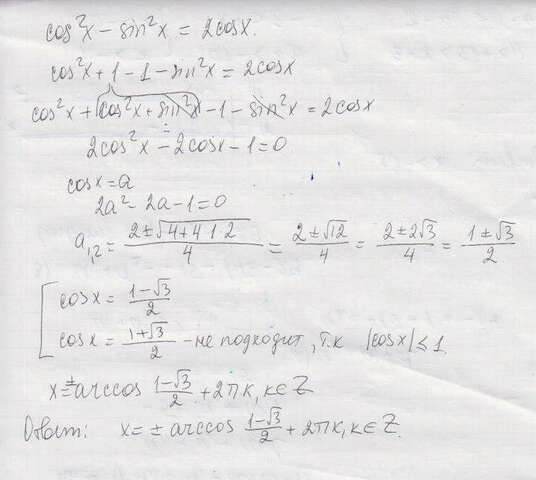 cos²x − sin²x = 2cosx.
cos²x + 1 − 1 − sin²x = 2cosx
cos²x + cos²x + sin²x − 1 − sin²x = 2cosx
2cos²x − 2cosx − 1 = 0
cosx = a
2a² − 2a − 1 = 0
a₁,₂ = (2 ± √(4 + 4·1·2))/4 = (2 ± √12)/4 = (2 ± 2√3)/4 = (1 ± √3)/2
[ cosx = (1 − √3)/2
cosx = (1 + √3)/2 − не подходит, т.к |cosx| ≤ 1
x = ± arccos (1 − √3)/2 + 2πk, k ∈ Z
Ответ: x = ± arccos (1 − √3)/2 + 2πk, k ∈ Z.